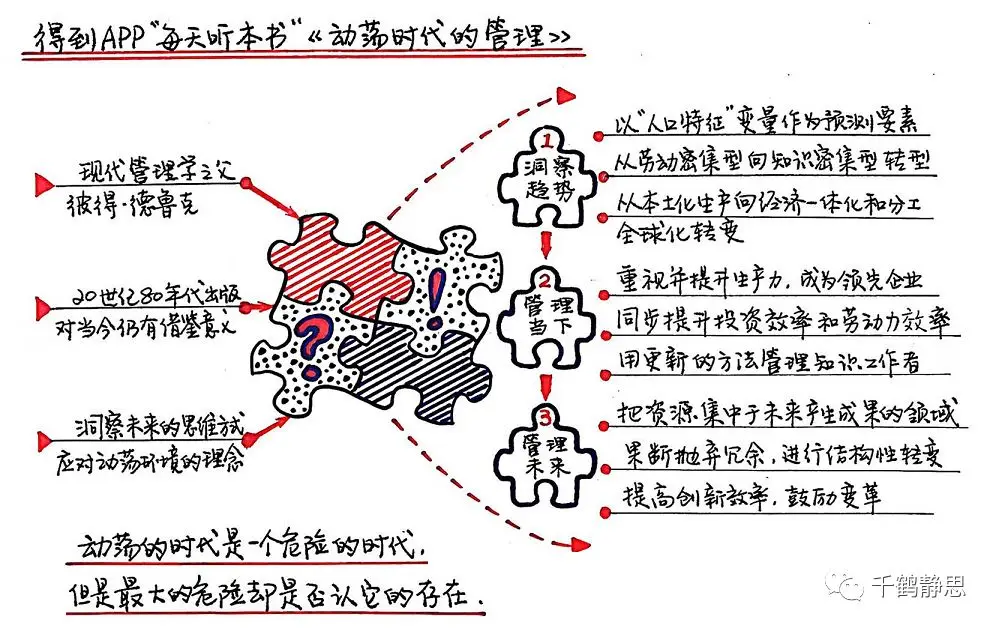 得到APP"每天听本书"《动荡时代的管理》
现代管理学之父
彼得·德鲁克
20世纪80年代出版
对当今仍有借鉴意义
洞察未来的思维方式
应对动荡环境的理念
?
!
1
洞察
趋势
以"人口特征"变量作为预测要素
从劳动密集型向知识密集型转型
从本土化生产向经济一体化和分工
全球化转变
2
管理
当下
重视并提升生产力,成为领先企业
同步提升投资效率和劳动力效率
用更新的方法管理知识工作者
3
管理
未来
把资源集中于未来产生成果的领域
果断抛弃冗余,进行结构性转变
提高创新效率,鼓励变革
动荡的时代是一个危险的时代,
但是最大的危险却是否认它的存在.
千鹤静思